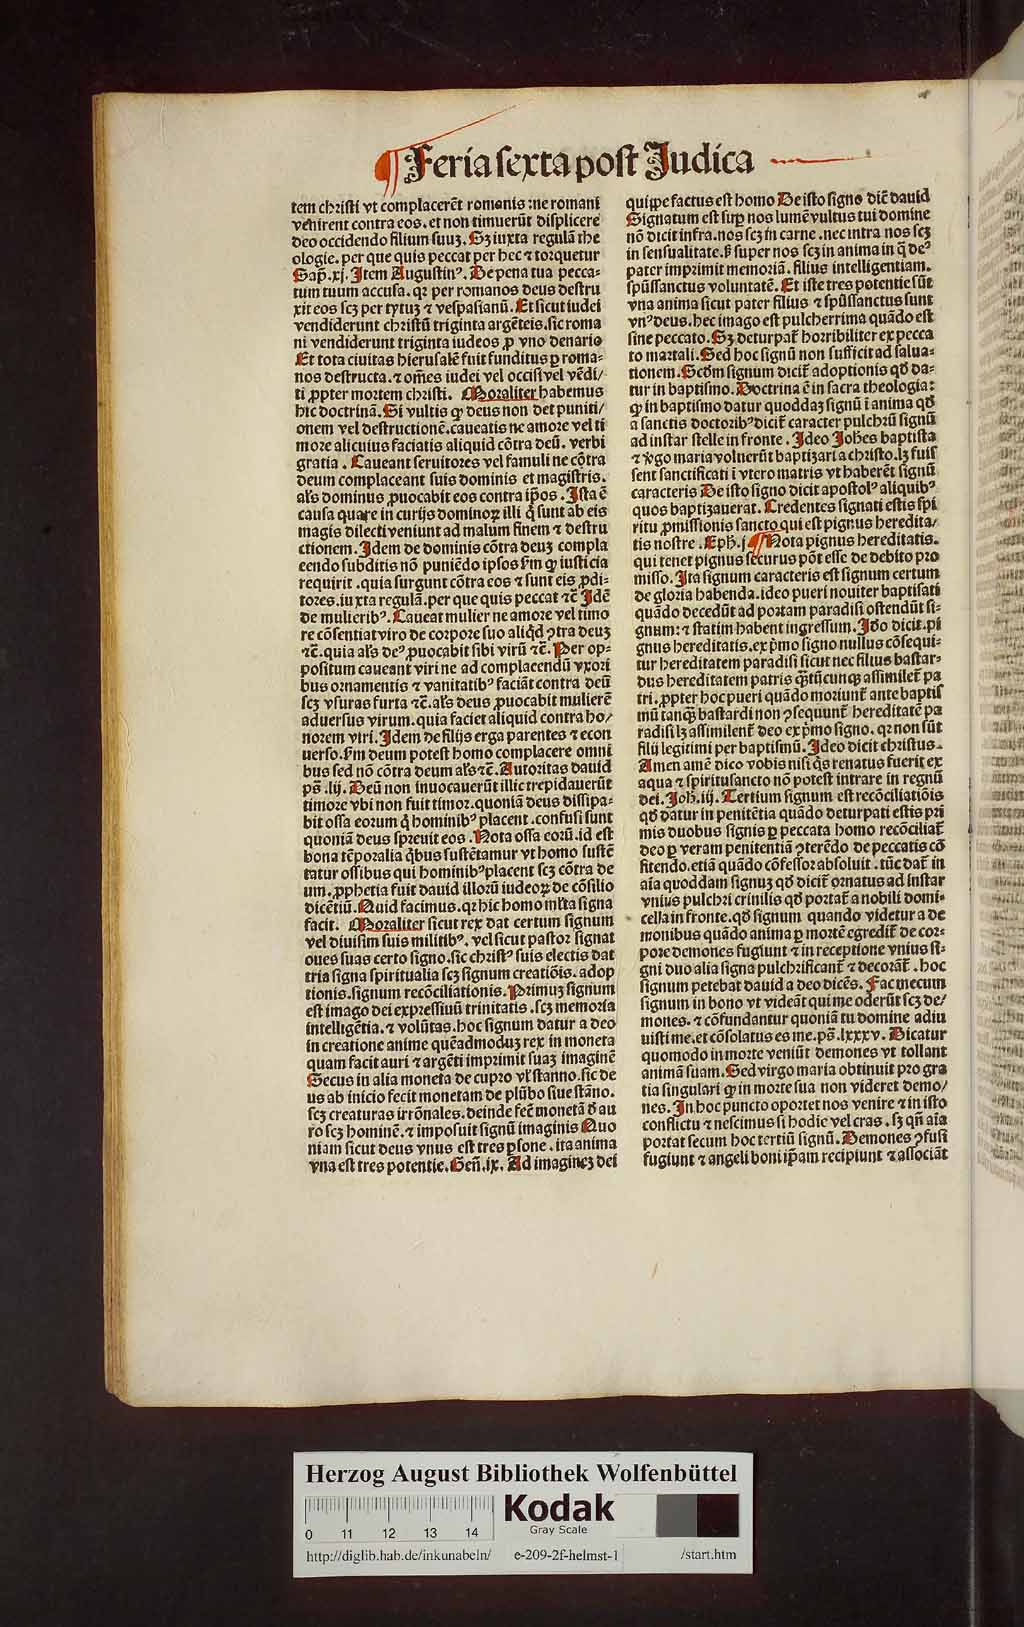 Feria sexta post Judica
tem christi vt complacerēt romanis: ne romani
venirent contra eos. et non timuerūt displicere
deo occidendo filium suuꝫ. Sꝫ iuxta regulā the
ologie. per que quis peccat per hec ⁊ torquetur
Sap̄. xj. Item Augustinꝰ. De pena tua pecca⸗
tum tuum accusa. qꝛ per romanos deus destru
xit eos scꝫ per tytuꝫ ⁊ vespasianū. Et sicut iudei
vendiderunt christū triginta argēteis. sic roma
ni vendiderunt triginta iudeos ꝓ vno denario
Et tota ciuitas hierusalē fuit funditus ꝑ roma⸗
nos destructa. ⁊ om̄es iudei vel occisi vel vēdi/
ti ꝓpter mortem christi. Moraliter habemus
hic doctrinā. Si vultis ꝙ deus non det puniti/
onem vel destructionē. caueatis ne amore vel ti
more alicuius faciatis aliquid cōtra deū. verbi
gratia. Caueant seruitores vel famuli ne cōtra
deum complaceant suis dominis et magistris.
al̓s dominus ꝓuocabit eos contra ip̄os. Ista ē
causa quare in curijs dominoꝝ illi q̇ sunt ab eis
magis dilecti veniunt ad malum finem ⁊ destru
ctionem. Idem de dominis cōtra deuꝫ compla
cendo subditis nō puniēdo ipsos ẜm ꝙ iusticia
requirit. quia surgunt cōtra eos ⁊ sunt eis ꝓdi⸗
tores. iuxta regulā. per que quis peccat ⁊c̄. Idē
de mulieribꝰ. Caueat mulier ne amore vel timo
re cōsentiat viro de corpore suo aliqd̓ ↄtra deuꝫ
⁊c̄. quia al̓s deꝰ ꝓuocabit sibi virū ⁊c̄. Per op⸗
positum caueant viri ne ad complacendū vxori
bus ornamentis ⁊ vanitatibꝰ faciāt contra deū
scꝫ vsuras furta ⁊c̄. al̓s deus ꝓuocabit mulierē
aduersus virum. quia faciet aliquid contra ho/
norem viri. Idem de filijs erga parentes ⁊ econ
uerso. ẜm deum potest homo complacere omni
bus sed nō cōtra deum al̓s ⁊c̄. Autoritas dauid
pš. lij. Deū non inuocauerūt illic trepidauerūt
timore vbi non fuit timor. quoniā deus dissipa⸗
bit ossa eorum q̇ hominibꝰ placent. confusi sunt
quoniā deus spreuit eos. Nota ossa eorū. id est
bona tēporalia q̇bus sustētamur vt homo sustē
tatur ossibus qui hominibꝰ placent scꝫ cōtra de
um. ꝓphetia fuit dauid illorū iudeoꝝ de cōsilio
dicētiū. Quid facimus. qꝛ hic homo ml̓ta signa
facit. Moraliter sicut rex dat certum signum
vel diuisim suis militibꝰ. vel sicut pastor signat
oues suas certo signo. sic christꝰ suis electis dat
tria signa spiritualia scꝫ signum creatiōis. adop
tionis. signum recōciliationis. Primuꝫ signum
est imago dei expressiuū trinitatis. scꝫ memoria
intelligētia. ⁊ volūtas. hoc signum datur a deo
in creatione anime quēadmoduꝫ rex in moneta
quam facit auri ⁊ argēti imprimit suaꝫ imaginē
Secus in alia moneta de cupro vl̓ stanno. sic de
us ab inicio fecit monetam de plūbo siue stāno.
scꝫ creaturas irrōnales. deinde fec̄ monetā d̓ au
ro scꝫ hominē. ⁊ imposuit signū imaginis Quo
niam sicut deus vnus est tres ꝑsone. ita anima
vna est tres potentie. Gen̄. ix. Ad imagineꝫ dei
quippe factus est homo De isto signo dic̄ dauid
Signatum est sup̱ nos lumē vultus tui domine
nō dicit infra. nos scꝫ in carne. nec intra nos scꝫ
in sensualitate. ß super nos scꝫ in anima in q̄ deꝰ
pater imprimit memoriā. filius intelligentiam.
sp̄ussanctus voluntatē. Et iste tres potentie sūt
vna anima sicut pater filius ⁊ sp̄ussanctus sunt
vnꝰ deus. hec imago est pulcherrima quādo est
sine peccato. Sꝫ deturpat̄ horribiliter ex pecca
to mortali. Sed hoc signū non sufficit ad salua⸗
tionem. Scd̓m signum dicit̄ adoptionis qd̓ da⸗
tur in baptismo. Doctrina ē in sacra theologia:
ꝙ in baptismo datur quoddaꝫ signū ī anima qd̓
a sanctis doctoribꝰ dicit̄ caracter pulchrū signū
ad instar stelle in fronte. Ideo Joh̄es baptista
⁊ v̓go maria voluerūt baptizari a christo. lꝫ fuis
sent sanctificati ī vtero matris vt haberēt signū
caracteris De isto signo dicit apostolꝰ aliquibꝰ
quos baptizauerat. Credentes signati estis spi
ritu ꝓmissionis sancto qui est pignus heredita/
tis nostre. Eph̄. j. Nota pignus hereditatis.
qui tenet pignus securus pōt esse de debito pro
misso. Ita signum caracteris est signum certum
de gloria habenda. ideo pueri nouiter baptisati
quādo decedūt ad portam paradisi ostendūt si⸗
gnum: ⁊ statim habent ingressum. Iđo dicit. pi
gnus hereditatis. ex p̓mo signo nullus cōsequi⸗
tur hereditatem paradisi sicut nec filius bastar⸗
dus hereditatem patris q̄ꝫtūcunqꝫ assimilet̄ pa
tri. ꝓpter hoc pueri quādo moriunt̄ ante baptis
mū tanqꝫ̄ bastardi non ↄsequunt̄ hereditatē pa
radisi lꝫ assimilent̄ deo ex p̓mo signo. qꝛ non sūt
filij legitimi per baptismū. Ideo dicit christus.
Amen amē dico vobis nisi q̇s renatus fuerit ex
aqua ⁊ spiritusancto nō potest intrare in regnū
dei. Joh. iij. Tertium signum est recōciliatiōis
qd̓ datur in penitētia quādo deturpati estis pri
mis duobus signis ꝑ peccata homo recōciliat̄
deo ꝑ veram penitentiā ↄterēdo de peccatis cō
fitendo. etiā quādo cōfessor absoluit. tūc dat̄ in
aīa quoddam signuꝫ qd̓ dicit̄ ornatus ad instar
vnius pulchri crinilis qd̓ portat̄ a nobili domi⸗
cella in fronte. qd̓ signum quando videtur a de
monibus quādo anima ꝑ mortē egredit̄ de cor⸗
pore demones fugiunt ⁊ in receptione vnius si⸗
gni duo alia signa pulchrificant̄ ⁊ decorāt̄. hoc
signum petebat dauid a deo dicēs. Fac mecum
signum in bono vt videāt qui me oderūt scꝫ de/
mones. ⁊ cōfundantur quoniā tu domine adiu
uisti me. et cōsolatus es me. pš. lxxxv. Dicatur
quomodo in morte veniūt demones vt tollant
animā suam. Sed virgo maria obtinuit pro gra
tia singulari ꝙ in morte sua non videret demo/
nes. In hoc puncto oportet nos venire ⁊ in isto
conflictu ⁊ nescimus si hodie vel cras. sꝫ qn̄ aīa
portat secum hoc tertiū signū. Demones ↄfusi
fugiunt ⁊ angeli boni ip̄am recipiunt ⁊ associāt
Herzog August Bibliothek Wolfenbüttel
0 11 12 13 14
Kodak
Gray Scale
http://diglib.hab.de/inkunabeln/ e-209-2f-helmst-1 /start.htm